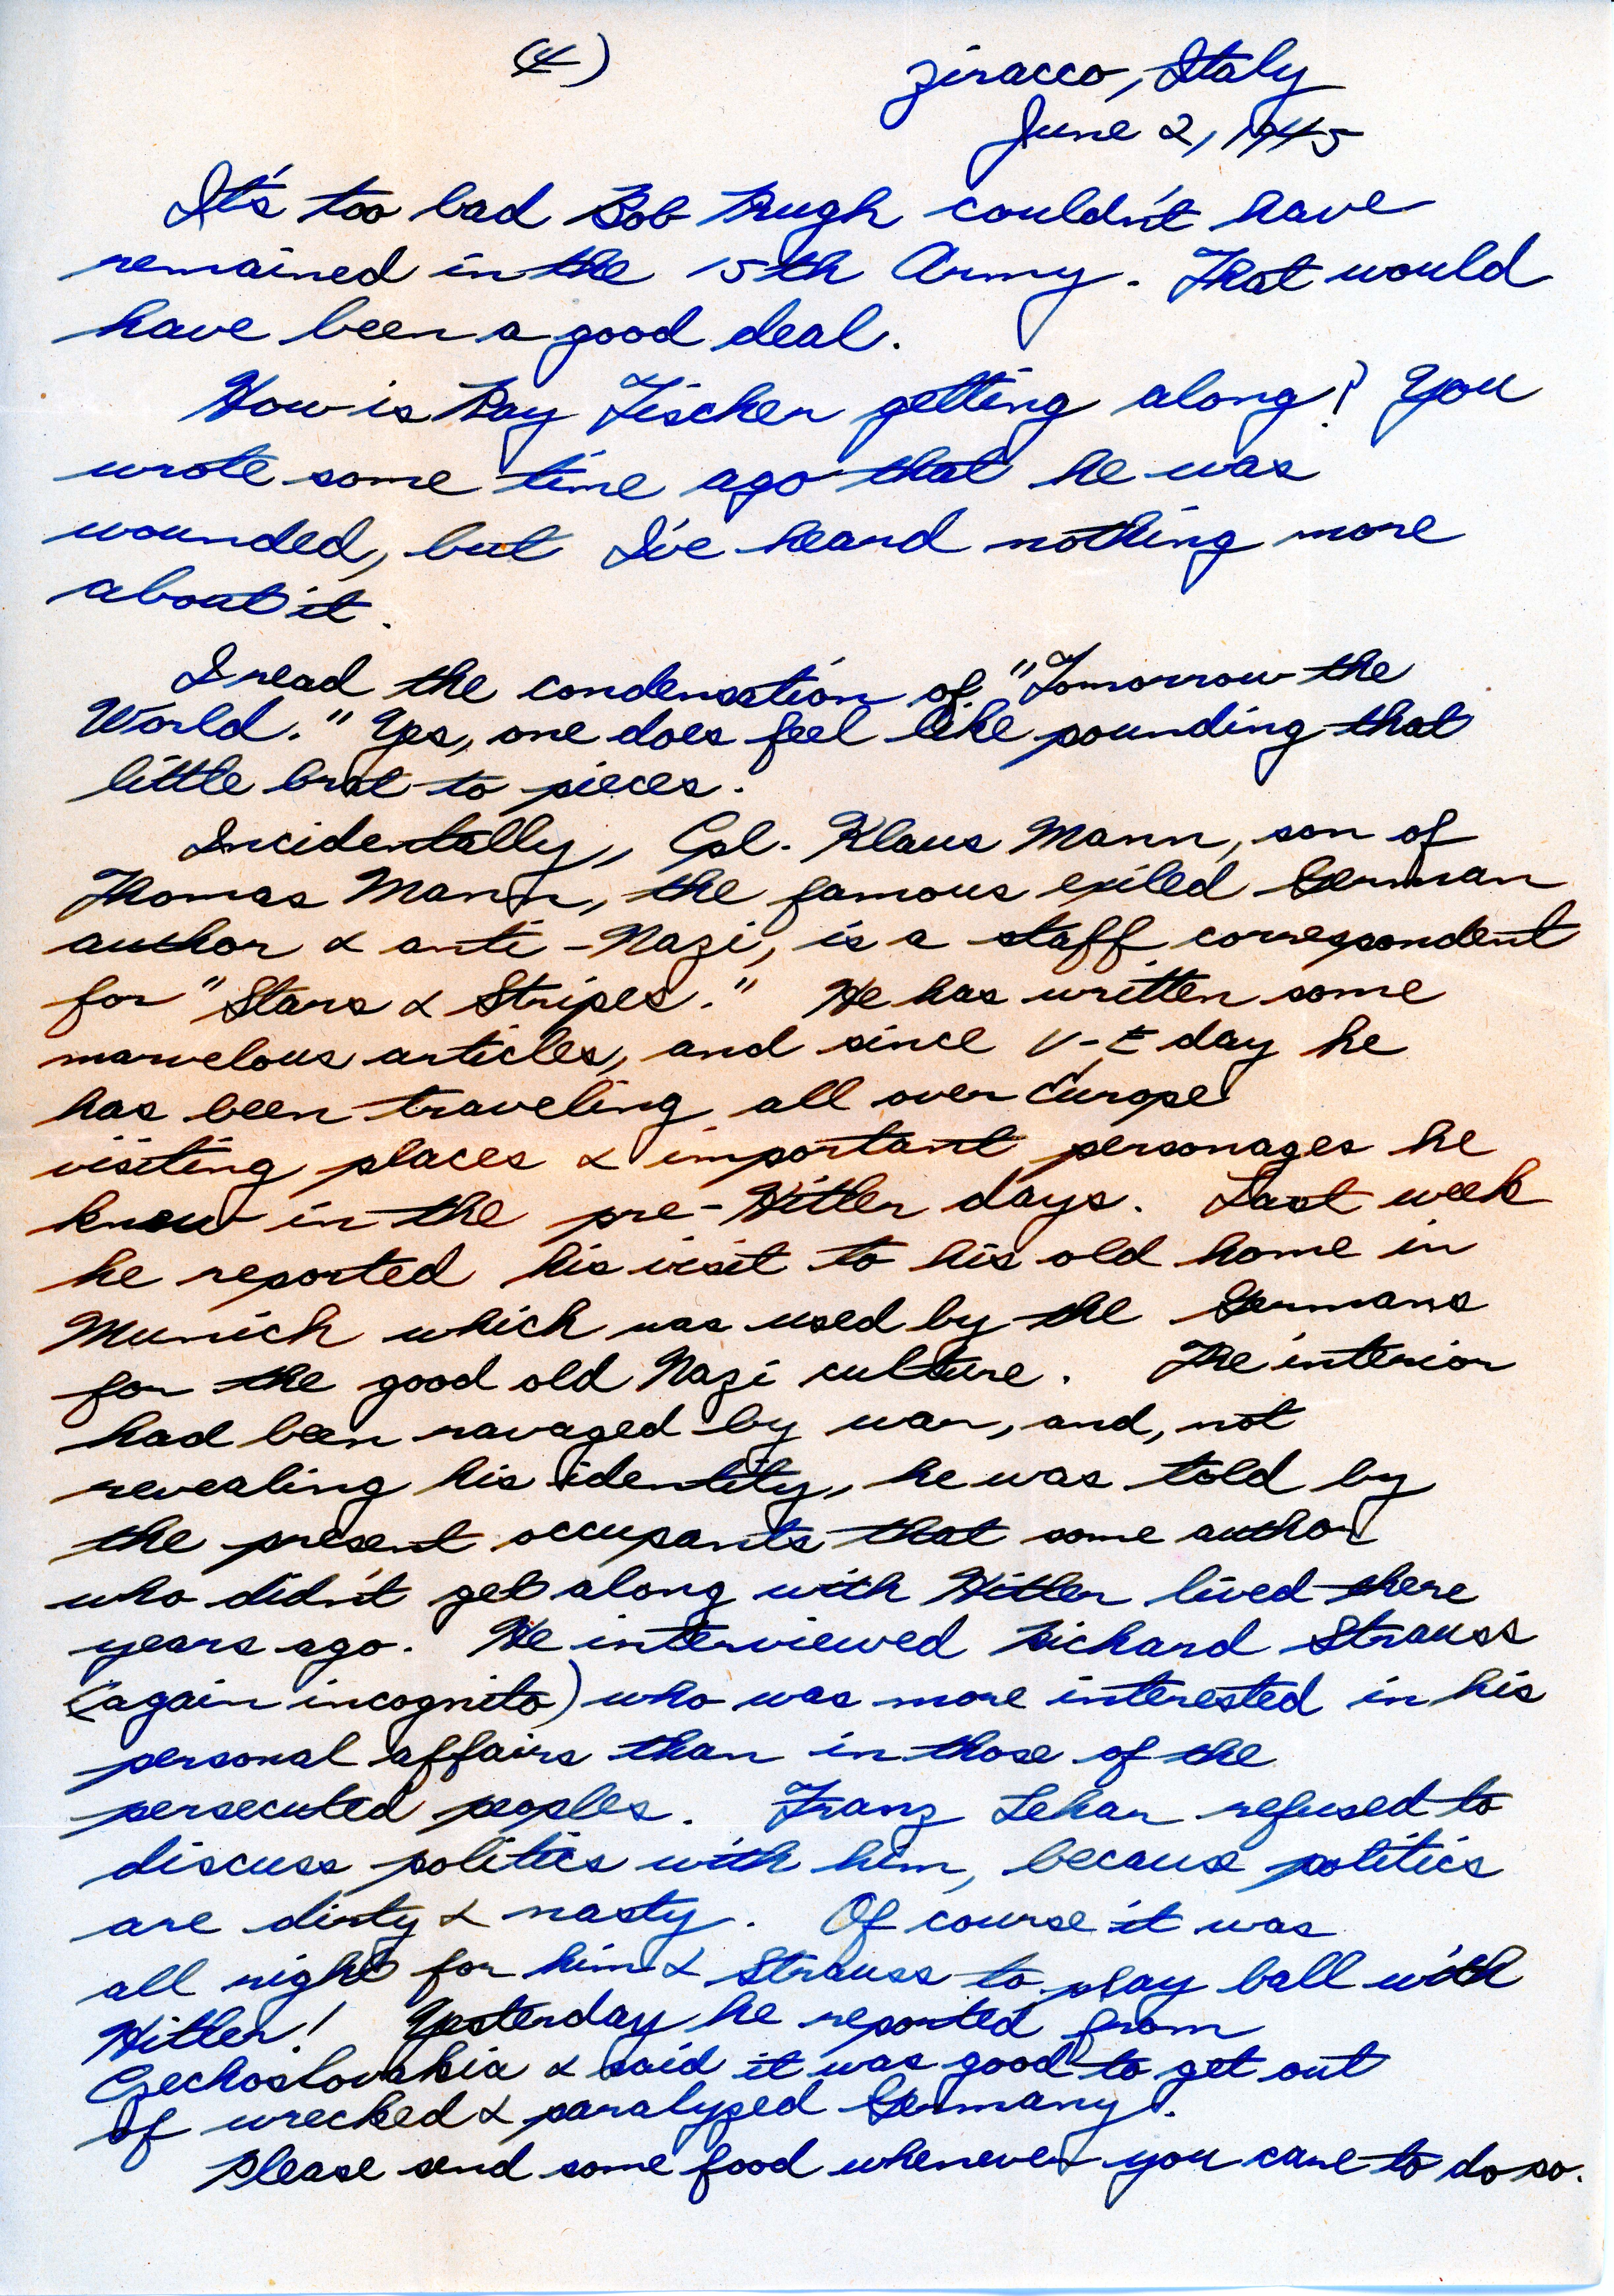 (4)
Ziracco, Italy
June 2, 1945
It's too bad Bob Pugh couldn't have
remained in the 15th Army. That would
have been a good deal.
How is Ray Fischer getting along? You
wrote some time ago that he was
wounded, but I've heard nothing more
about it.
I read the condensation of "Tomorrow the
World." Yes, one does feel like pounding that
little brat to pieces.
Incidentally, Cpl. Klaus Mann, son of
Thomas Mann, the famous exiled German
author & anti-Nazi, is a staff correspondent
for "Stars & Stripes." He has written some
marvelous articles, and since V-E day he
has been traveling all over Europe
visiting places & important personages he
knew in the pre-Hitler days. Last week
he reported his visit to his old home in
Munich which was used by the Germans
for the good old Nazi culture. The interior
had been ravaged by war, and, not
revealing his identity, he was told by
the present occupants that some author
who didn't get along with Hitler lived there
years ago. He interviewed Richard Strauss
(again incognito) who was more interested in his
personal affairs than in those of the
persecuted peoples. Franz Lehar refused to
discuss politics with him, because politics
are dirty & nasty. Of course it was
all right for him & Strauss to play ball with
Hitler! Yesterday he reported from
Czechoslovakia & said it was good to get out
of wrecked & paralyzed Germany.
Please send some food whenever you care to do so.